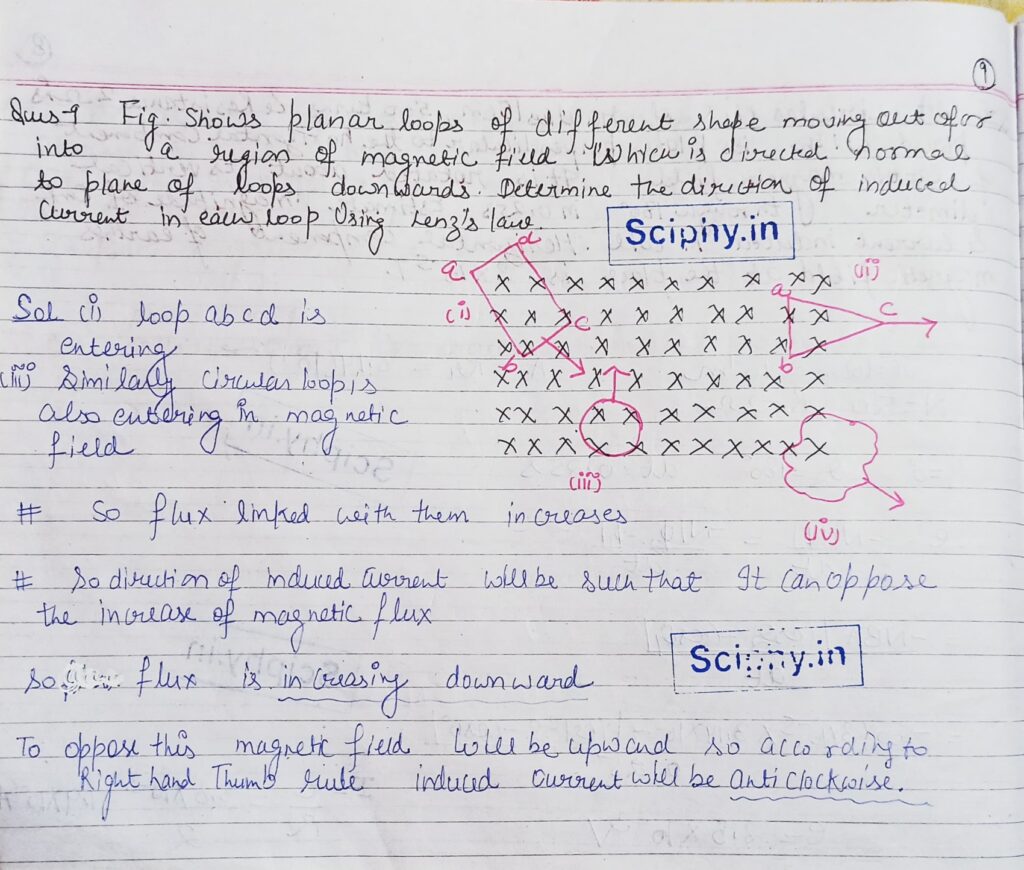 9
Ques-9 Fig. Shows planar loops of different shape moving out of or
into a region of magnetic field which is directed normal
to plane of loops downwards. Determine the direction of induced
current in each loop Using Lenz's law.
Sciphy.in
a d
(i) c b
(ii) a c b
(iii)
(iv)
Sol (i) loop abcd is
entering
(iii) Similarly circular loop is
also entering in magnetic
field
# So flux linked with them increases
# So direction of induced current will be such that It can oppose
the increase of magnetic flux
Sciphy.in
So flux is increasing downward
To oppose this magnetic field will be upward so according to
Right hand Thumb rule induced current will be anticlockwise.